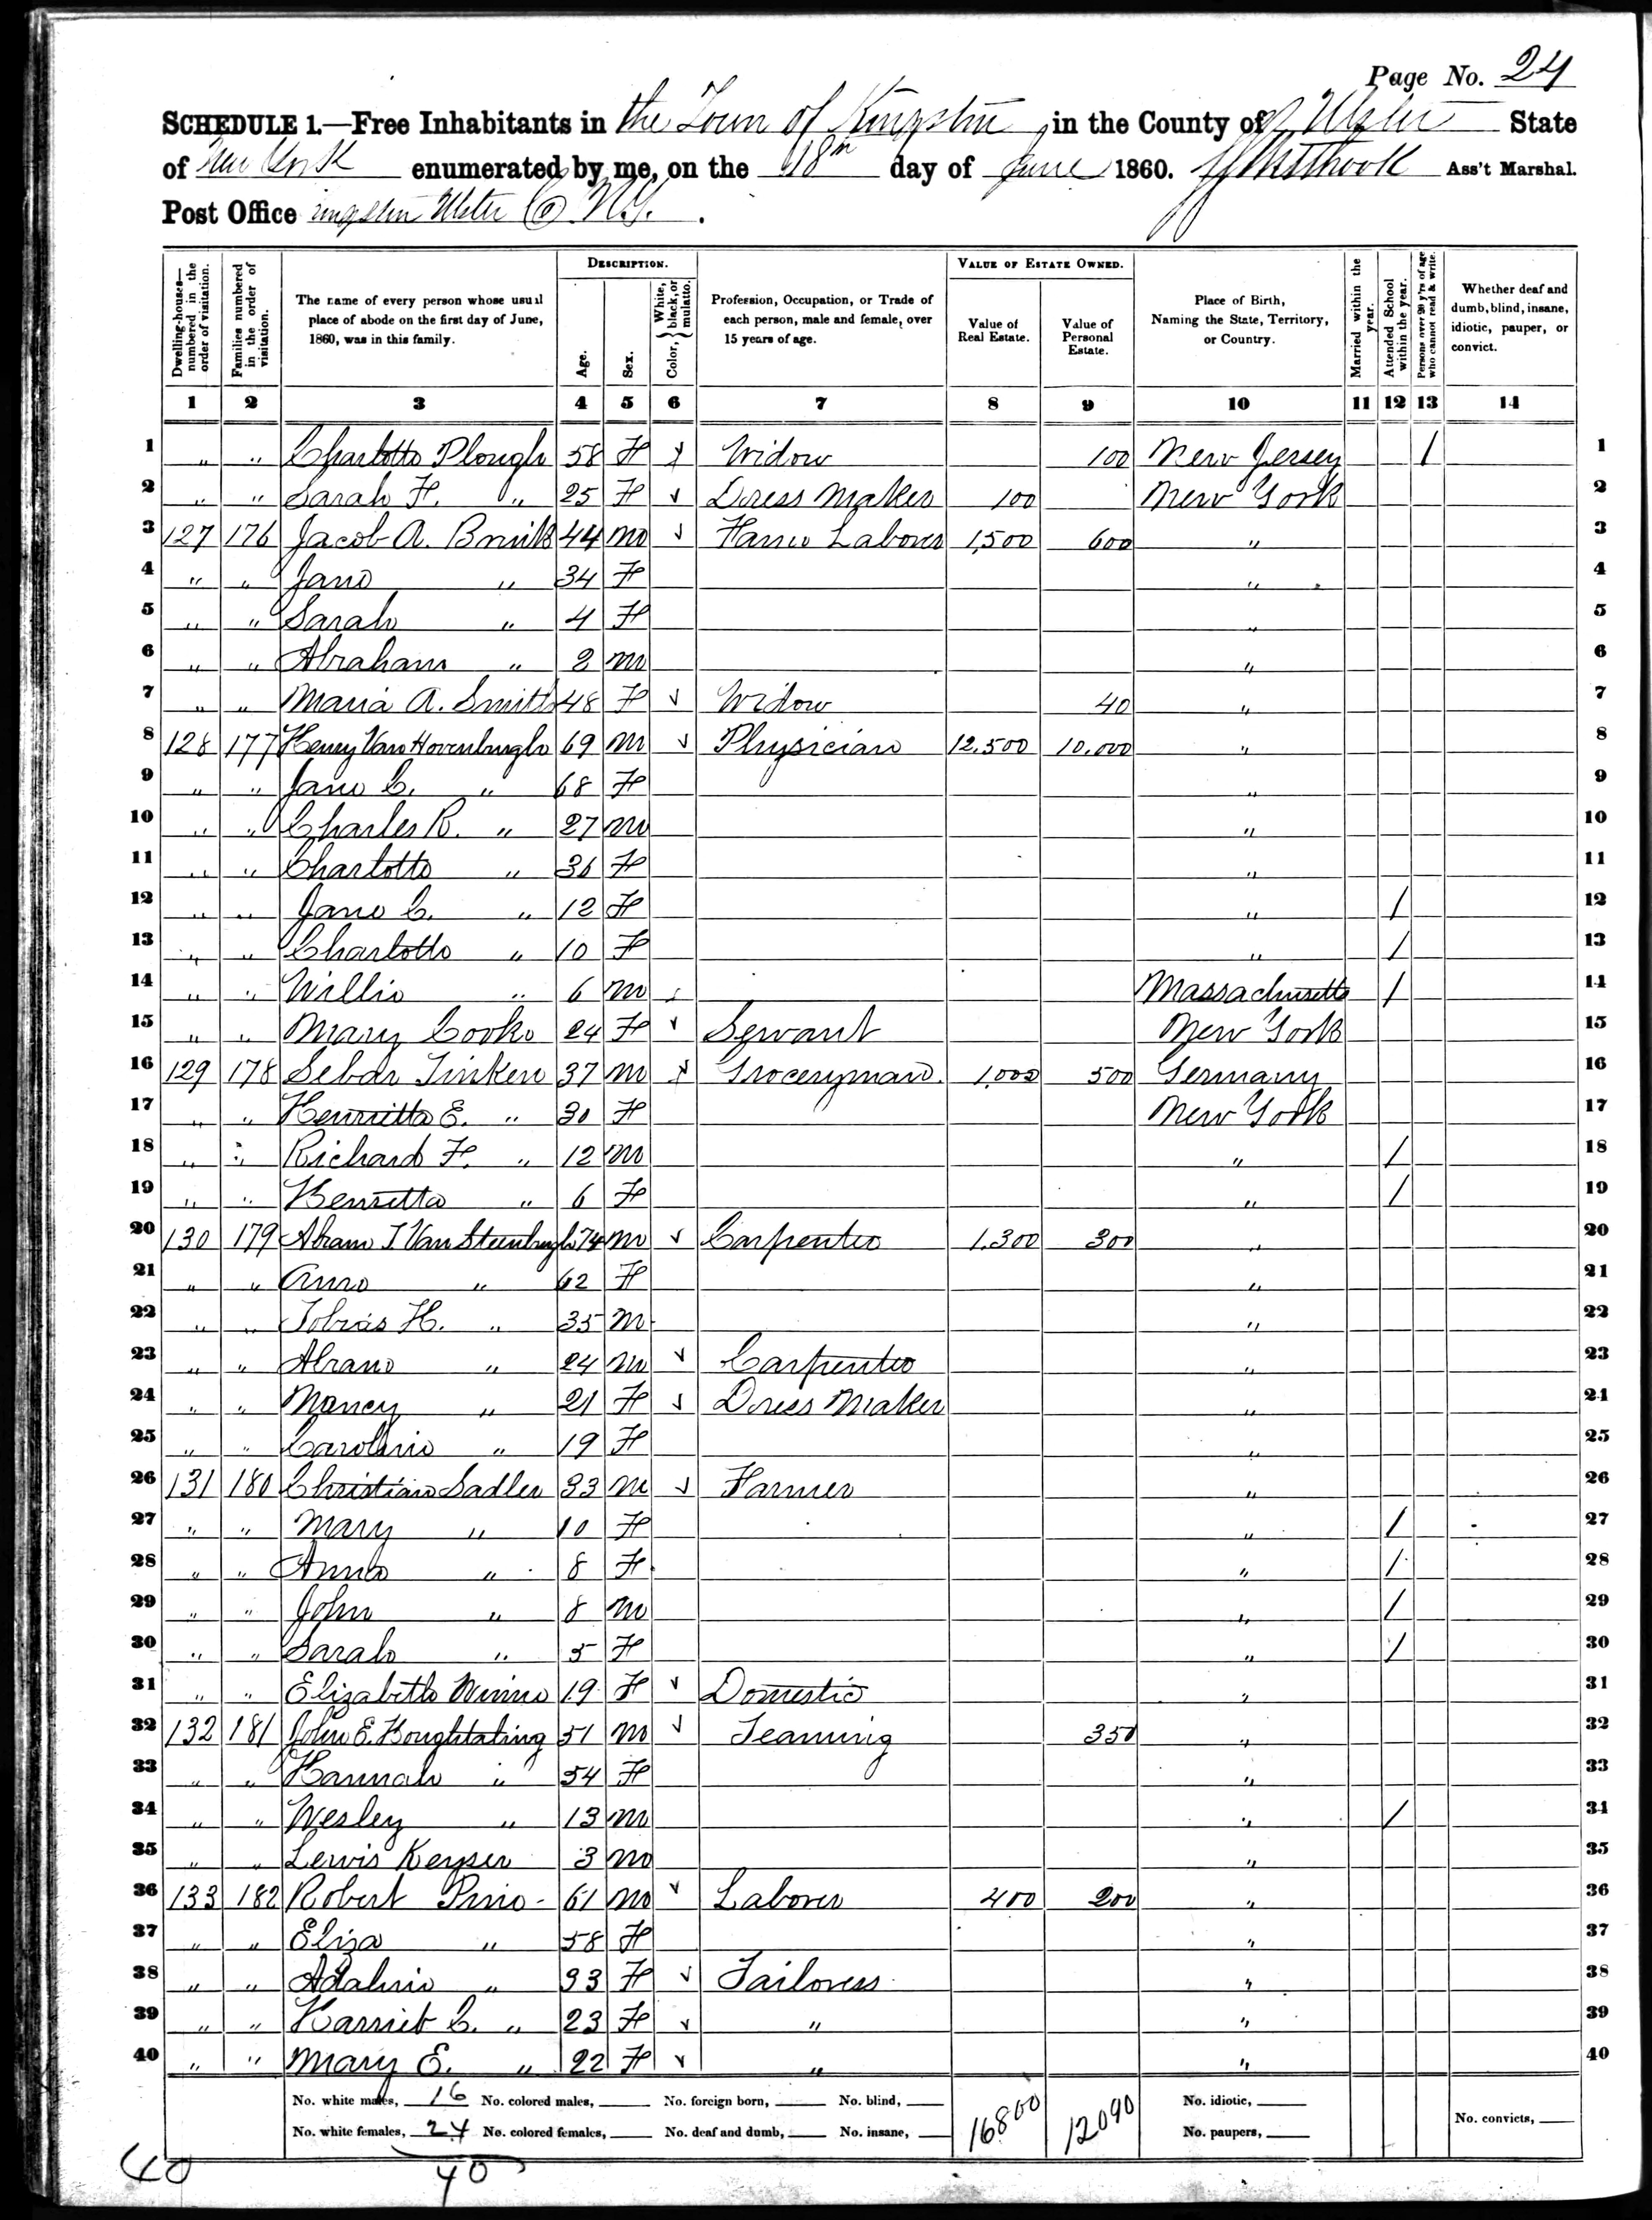 Page No. 24
SCHEDULE 1.—Free Inhabitants in the Town of Kingston in the County of Ulster State
of New York enumerated by me, on the 18th day of June 1860. Ass't Marshal.
Post Office Kingston Ulster Co N.Y.
DESCRIPTION. VALUE OF ESTATE OWNED.
Dwelling-houses—numbered in the order of visitation. Families numbered in the order of visitation. The name of every person whose usual place of abode on the first day of June, 1860, was in this family. Age. Sex. Color, White, black, or mulatto. Profession, Occupation, or Trade of each person, male and female, over 15 years of age. Value of Real Estate. Value of Personal Estate. Place of Birth, Naming the State, Territory, or Country. Married within the year. Attended School within the year. Persons over 20 y'rs of age who cannot read & write. Whether deaf and dumb, blind, insane, idiotic, pauper, or convict.
1 2 3 4 5 6 7 8 9 10 11 12 13 14
1 " " Charlotte Plough 58 F Widow 100 New Jersey / 1
2 " " Sarah F. " 25 F Dress Maker 100 New York 2
3 127 176 Jacob A. 44 M Farm Laborer 1,500 600 " 3
4 " " Jane " 34 F " 4
5 " " Sarah " 4 F " 5
6 " " Abraham " 2 M " 6
7 " " Maria A. Smith 48 F Widow 40 " 7
8 128 177 Henry Van Hovenburgh 69 M Physician 12,500 10,000 " 8
9 " " Jane C. " 68 F " 9
10 " " Charles R. " 27 M " 10
11 " " Charlotte " 36 F " 11
12 " " Jane C. " 12 F " / 12
13 " " Charlotte " 10 F " / 13
14 " " Willie " 6 M Massachusetts / 14
15 " " Mary Cooke 24 F Servant New York 15
16 129 178 Sebar Tinken 37 M Groceryman. 1,000 500 Germany 16
17 " " Henrietta E. " 30 F New York 17
18 " " Richard F. " 12 M " / 18
19 " " Henretta " 6 F " / 19
20 130 179 Abram T. Van Steenbergh 74 M Carpenter 1,300 300 " 20
21 " " Anna " 62 F " 21
22 " " Tobias H. " 35 M " 22
23 " " Abram " 24 M Carpenter " 23
24 " " Nancy " 21 F Dress Maker " 24
25 " " Caroline " 19 F " 25
26 131 180 Christian Sadler 33 M Farmer " 26
27 " " Mary " 10 F " / 27
28 " " Anna " 8 F " / 28
29 " " John " 8 M " / 29
30 " " Sarah " 5 F " / 30
31 " " Elizabeth Winne 19 F Domestic " 31
32 132 181 John E. Houghtaling 51 M Teaming 350 " 32
33 " " Hannah " 54 F " 33
34 " " Wesley " 13 M " / 34
35 " " Lewis Keyser 3 M " 35
36 133 182 Robert Pine 61 M Laborer 400 200 " 36
37 " " Eliza " 58 F " 37
38 " " Adaline " 33 F Tailoress " 38
39 " " Harriet C. " 23 F " " 39
40 " " Mary E. " 22 F " " 40
No. white males, 16 No. colored males, No. foreign born, No. blind, 16800 12090 No. idiotic,
No. white females, 24 No. colored females, No. deaf and dumb, No. insane, No. paupers, No. convicts,
40 40